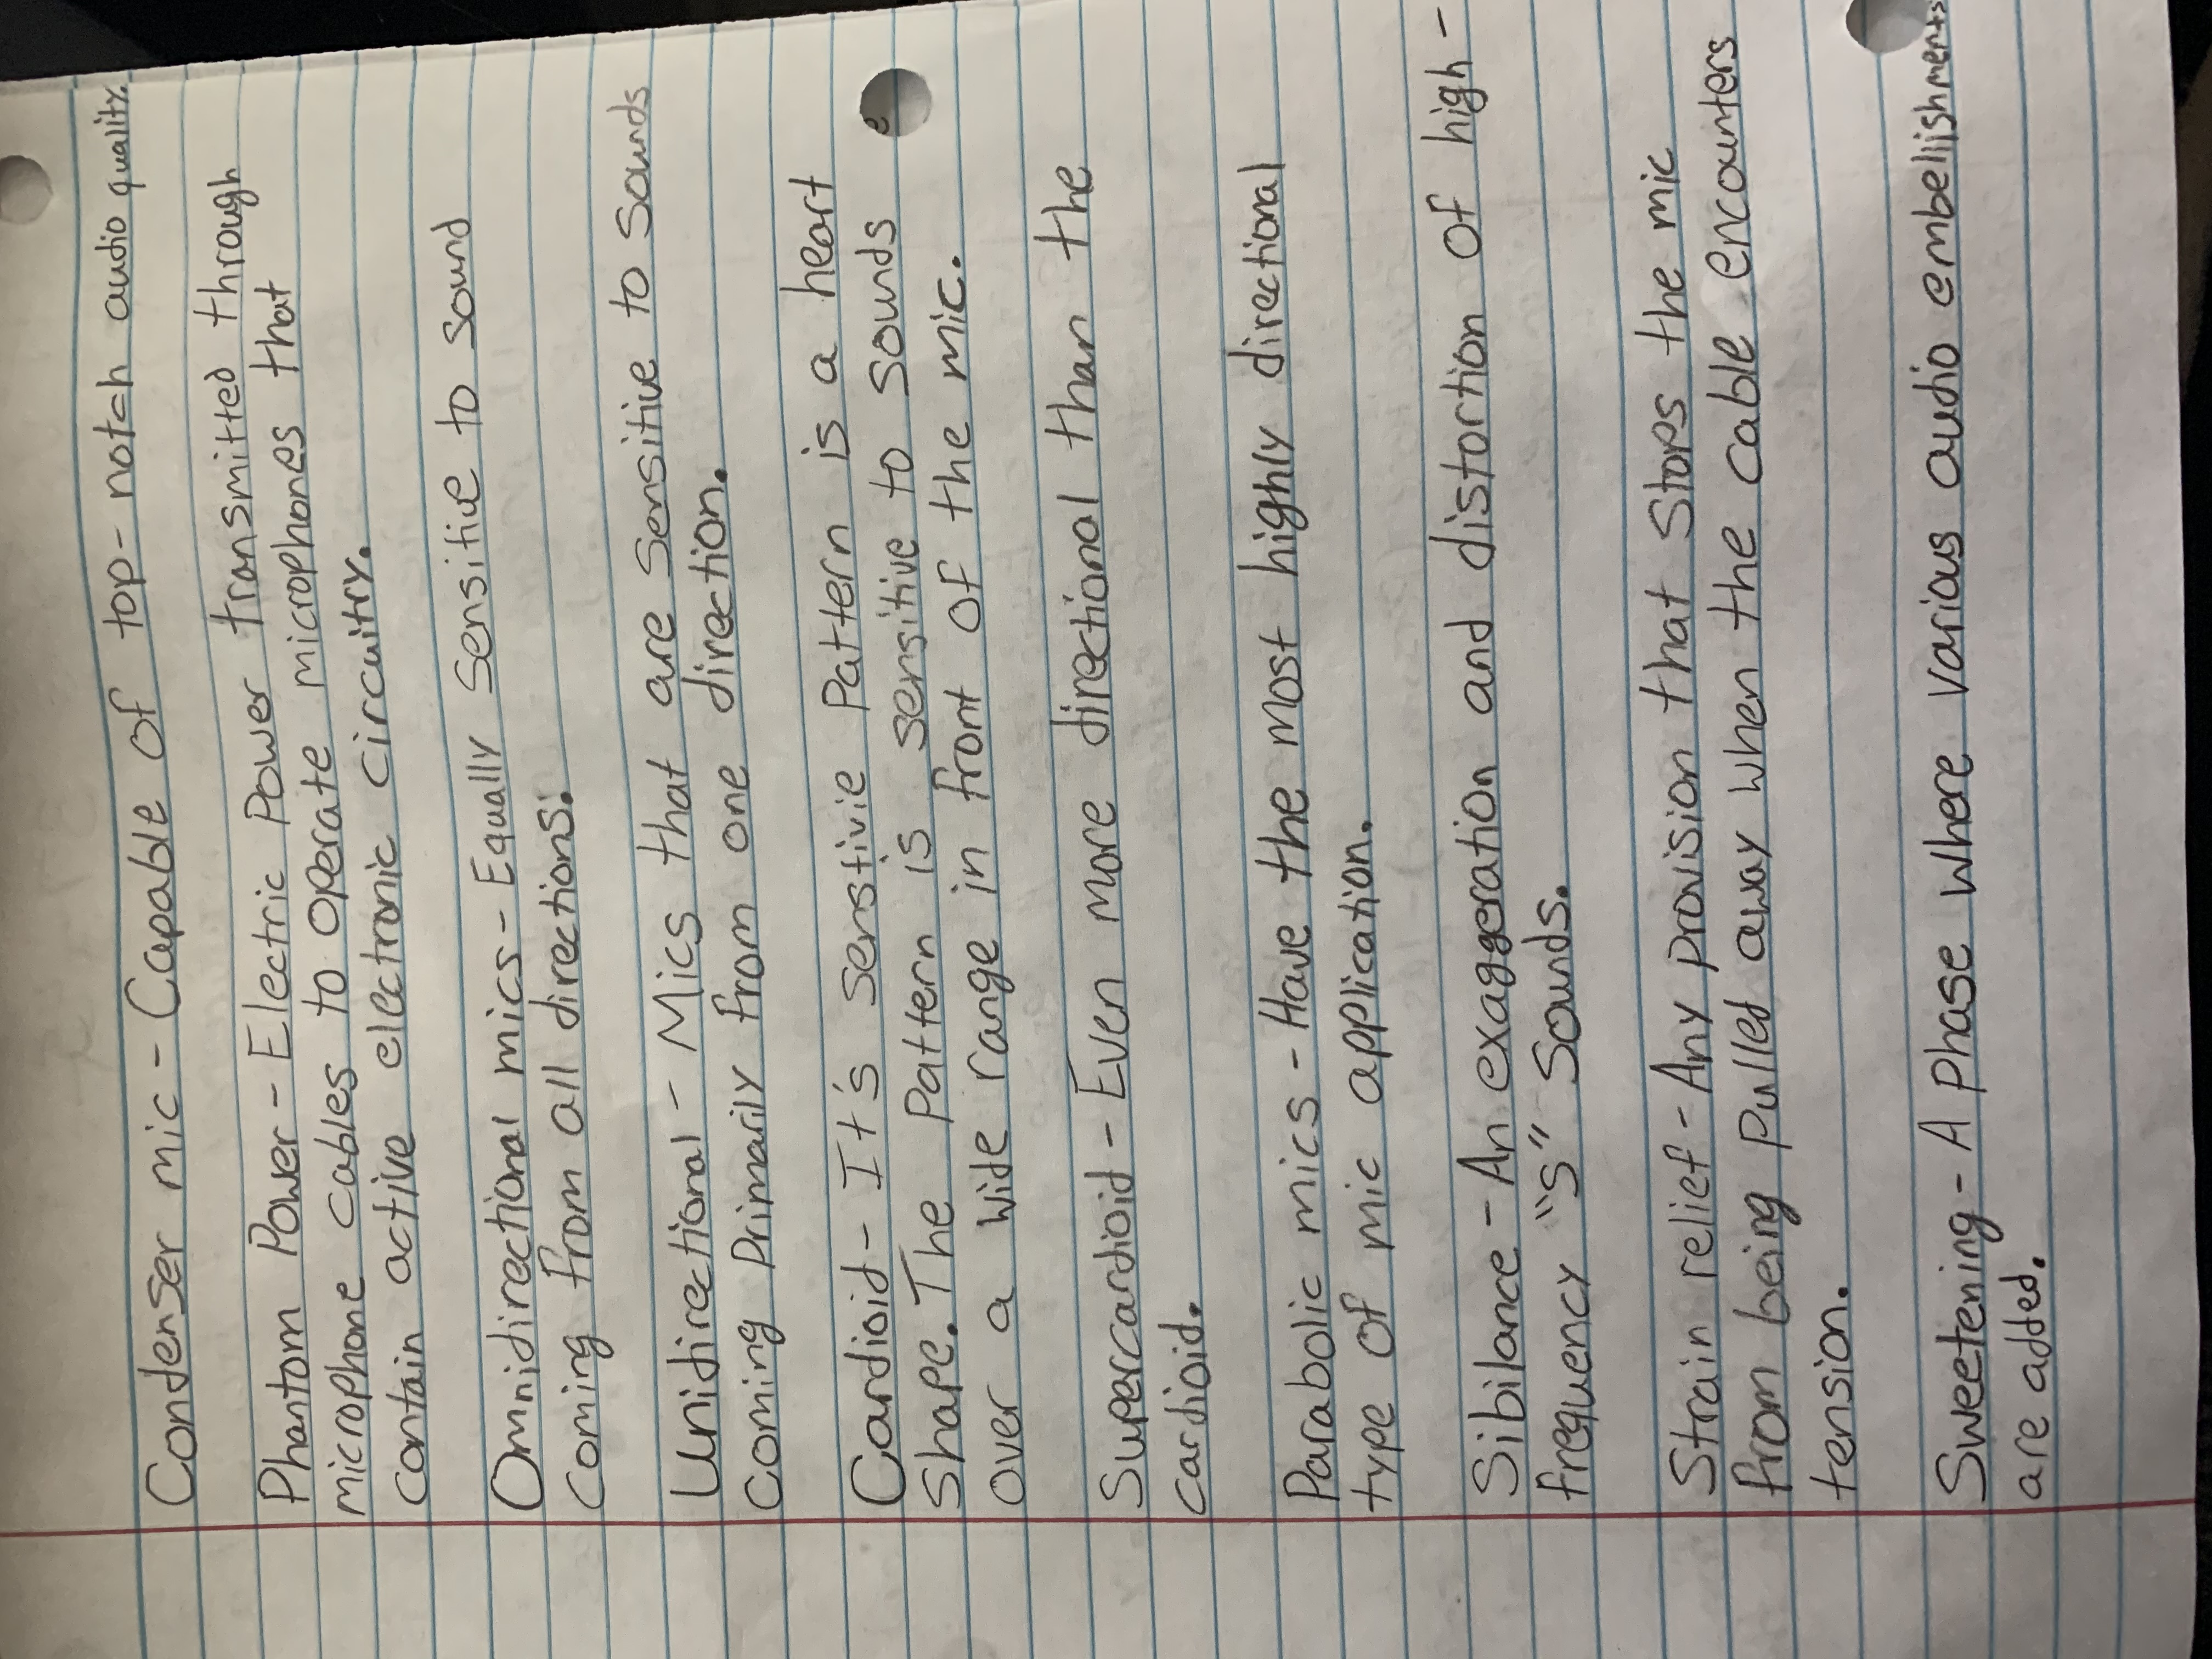 Condenser mic - Capable of top-notch audio quality.
Phantom Power - Electric Power transmitted through
microphone cables to operate microphones that
contain active electronic circuitry.
Omnidirectional mics - Equally Sensitive to Sound
Coming from all directions.
Unidirectional - Mics that are sensitive to Sounds
Coming Primarily from one direction.
Cardioid - It's senstivie Pattern is a heart
shape. The Pattern is sensitive to Sounds
over a wide range in front of the mic.
Supercardioid - Even more directional than the
cardioid.
Parabolic mics - Have the most highly directional
type of mic application.
Sibilance - An exaggeration and distortion of high-
frequency "S" Sounds.
Strain relief - Any provision that Stops the mic
from being Pulled away when the cable encounters
tension.
Sweetening - A phase where various audio embellishments
are added.